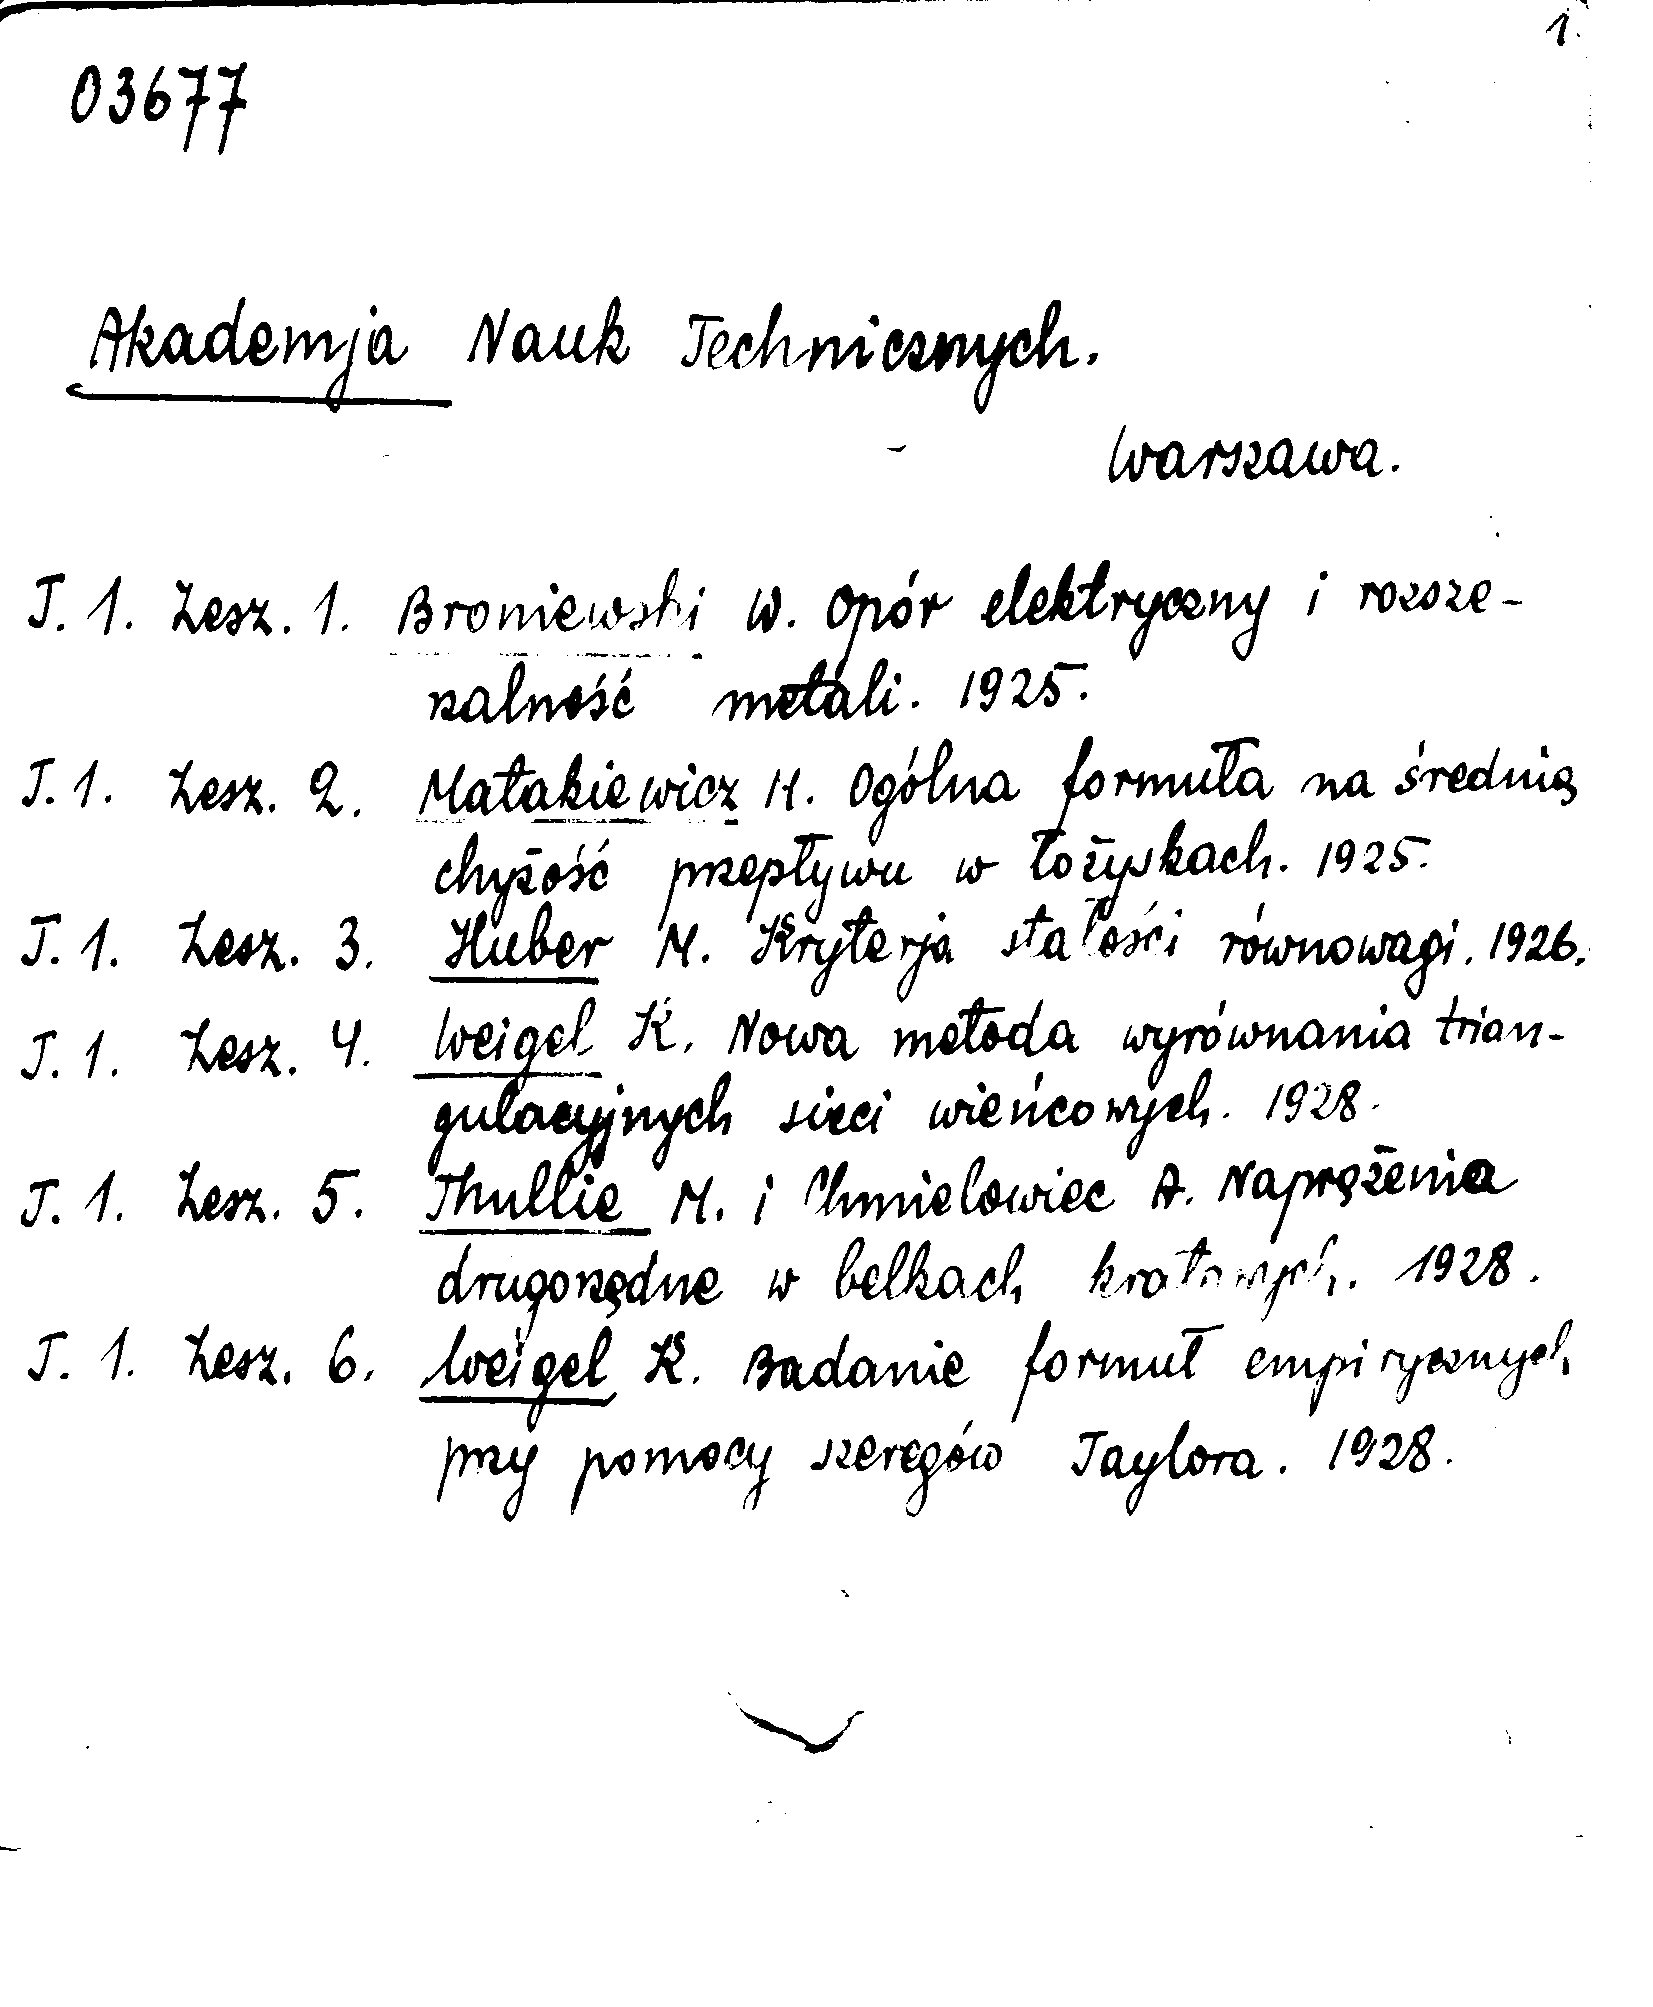 1.
03677
Akademja Nauk Technicznych.
Warszawa.
T. 1. Zesz. 1. Broniewski W. Opór elektryczny i rozsze-
rzalność metali. 1925.
T. 1. Zesz. 2. Matakiewicz M. Ogólna formuła na średnią
chyżość przepływu w łożyskach. 1925.
T. 1. Zesz. 3. Huber M. Kryterja stałości równowagi. 1926.
T. 1. Zesz. 4. Weigel K. Nowa metoda wyrównania trian-
gulacyjnych sieci wieńcowych. 1928.
T. 1. Zesz. 5. Thullie M. i Chmielowiec A. Naprężenia
drugorzędne w belkach kratowych. 1928.
T. 1. Zesz. 6. Weigel K. Badanie formuł empirycznych
przy pomocy szeregów Taylora. 1928.